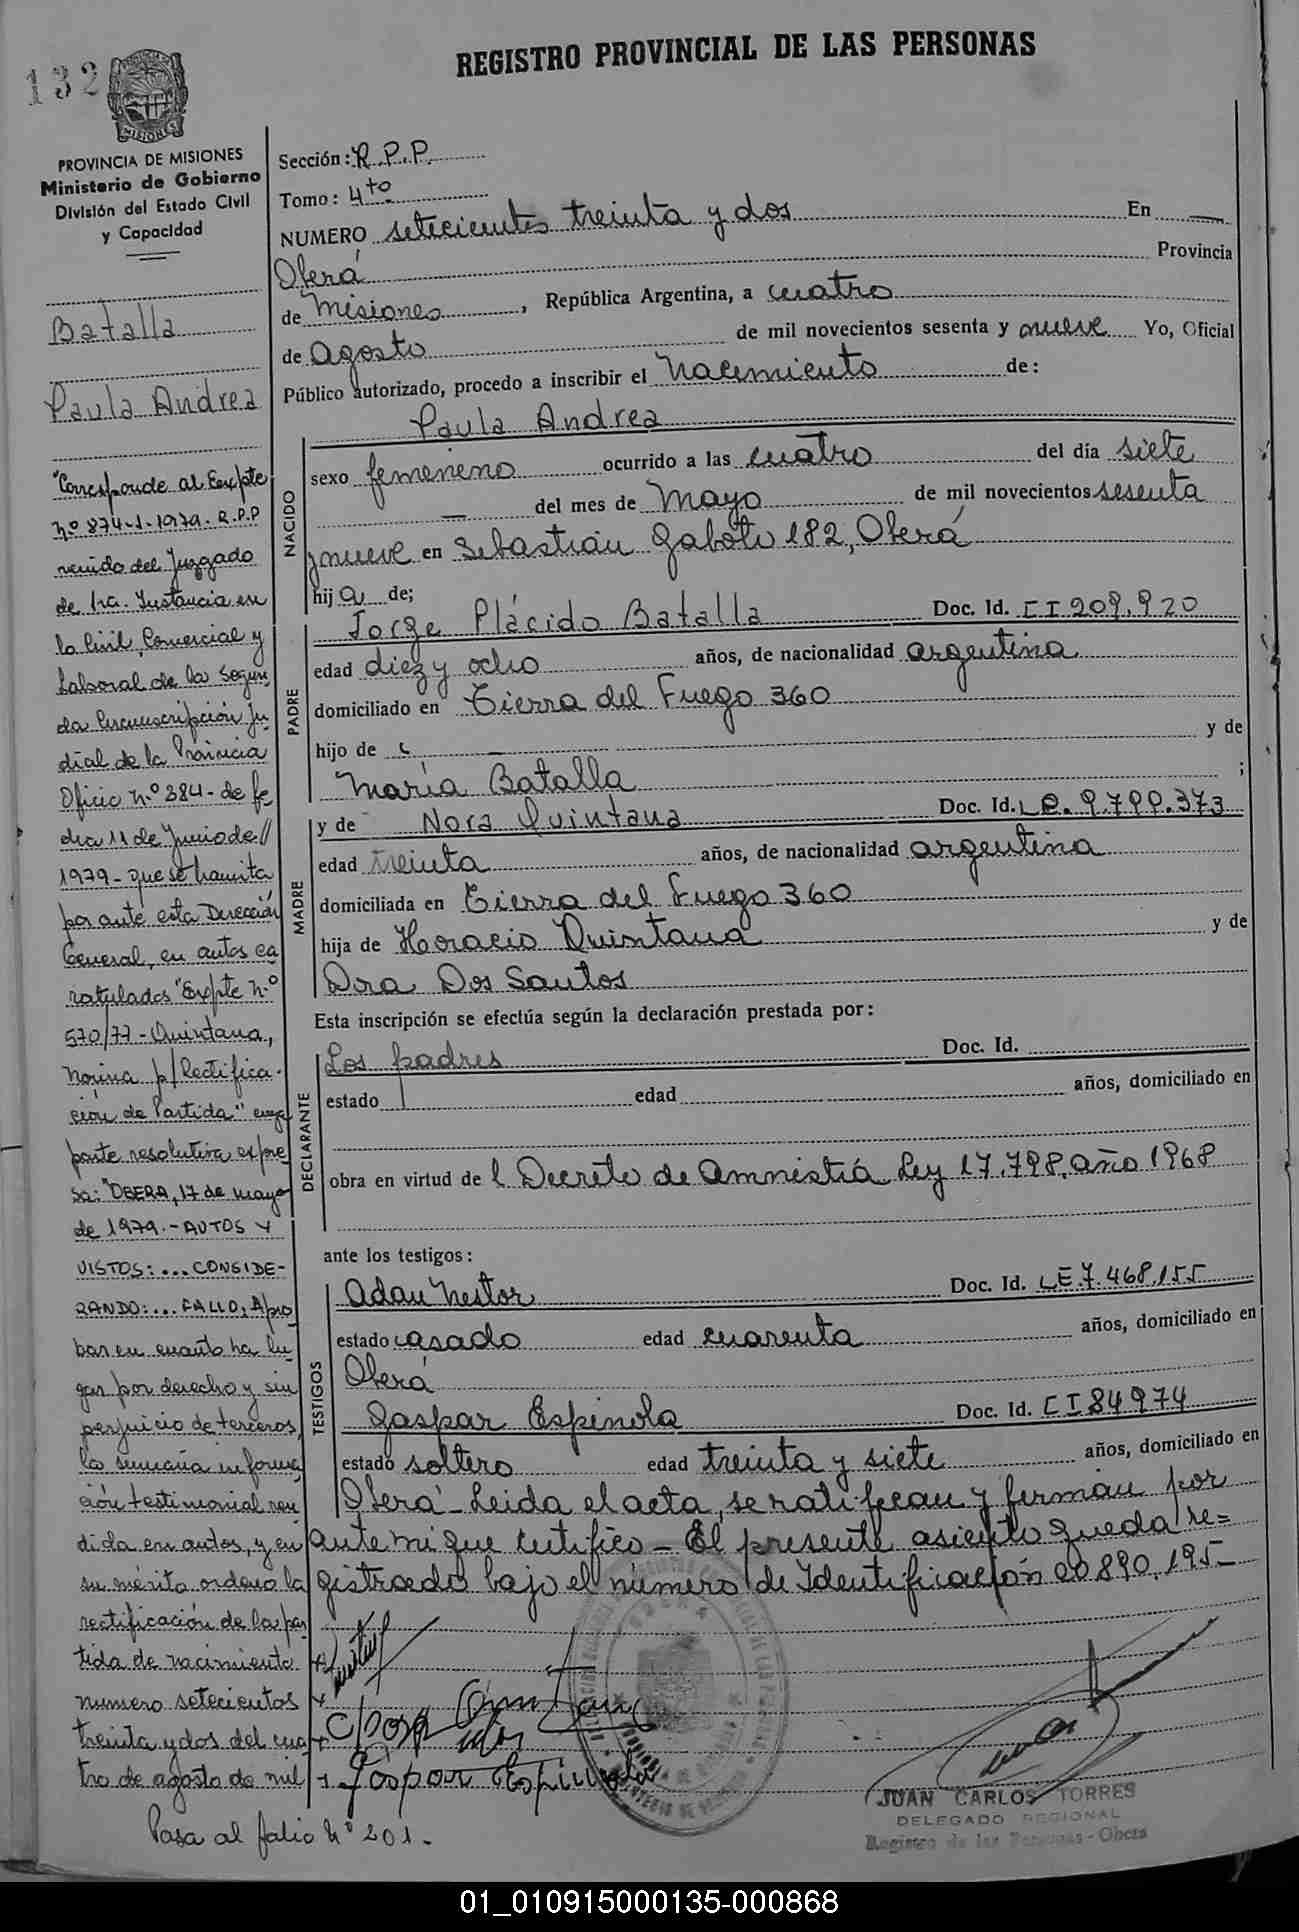 REGISTRO PROVINCIAL DE LAS PERSONAS
132
MISIONES
PROVINCIA DE MISIONES
Ministerio de Gobierno
División del Estado Civil
y Capacidad
Batalla
Paula Andrea
"Corresponde al Eexpte
nº 874-1-1979. R.P.P
venido del Juzgado
de 1ra. Instancia en
lo Civil, Comercial y
Laboral de la Segun
da Circunscripción Ju
dial de la Provincia
Oficio n.º 384- de fe
cha 11 de Junio de//
1979- que se tramita
por ante esta Dirección
General, en autos ca
ratulados "Expte n.º
570/77-Quintana,
Norma p/Rectifica-
ción de Partida" cuya
parte resolutiva expre
sa: "OBERA, 17 de mayo
de 1979.- AUTOS Y
VISTOS: ... CONSIDE-
RANDO: ... FALLO: Apro
bar en cuanto ha lu-
gar por derecho y sin
perjuicio de terceros,
la sumaria informa
ción testimonial ren
dida en autos, y en
su mérito ordeno la
rectificación de la par
tida de nacimiento
numero setecientos
treinta y dos del cua
tro de agosto de mil
Pasa al folio Nº 201.-
Sección: R.P.P.
Tomo: 4to
NUMERO setecientos treinta y dos En
Oberá Provincia
de Misiones, República Argentina, a cuatro
de Agosto de mil novecientos sesenta y nueve Yo, Oficial
Público autorizado, procedo a inscribir el Nacimiento de:
Paula Andrea
NACIDO
sexo femenino ocurrido a las cuatro del día siete
— del mes de Mayo de mil novecientos sesenta
y nueve en Sebastián Gaboto 182, Oberá
hija de;
PADRE
Jorge Plácido Batalla Doc. Id. CI 209.920
edad diez y ocho años, de nacionalidad argentina
domiciliado en Tierra del Fuego 360
hijo de — y de
María Batalla ;
MADRE
y de Nora Quintana Doc. Id. L.C. 9.799.373
edad treinta años, de nacionalidad argentina
domiciliada en Tierra del Fuego 360
hija de Horacio Quintana y de
Dra Dos Santos
Esta inscripción se efectúa según la declaración prestada por:
DECLARANTE
Los padres Doc. Id.
estado edad años, domiciliado en
obra en virtud de l Decreto de Amnistía Ley 17.798, año 1968
ante los testigos:
TESTIGOS
Adan Nestor Doc. Id. LE 7.468.155
estado casado edad cuarenta años, domiciliado en
Oberá
Gaspar Espinola Doc. Id. CI 84974
estado soltero edad treinta y siete años, domiciliado en
Oberá - Leida el acta, se ratifican y firman por
ante mi que certifico - El presente asiento queda re=
gistrado bajo el número de Identificación 20.890.195-
Gaspar Espinola
JUAN CARLOS TORRES
DELEGADO REGIONAL
Registro de las Personas - Obera
01_010915000135-000868